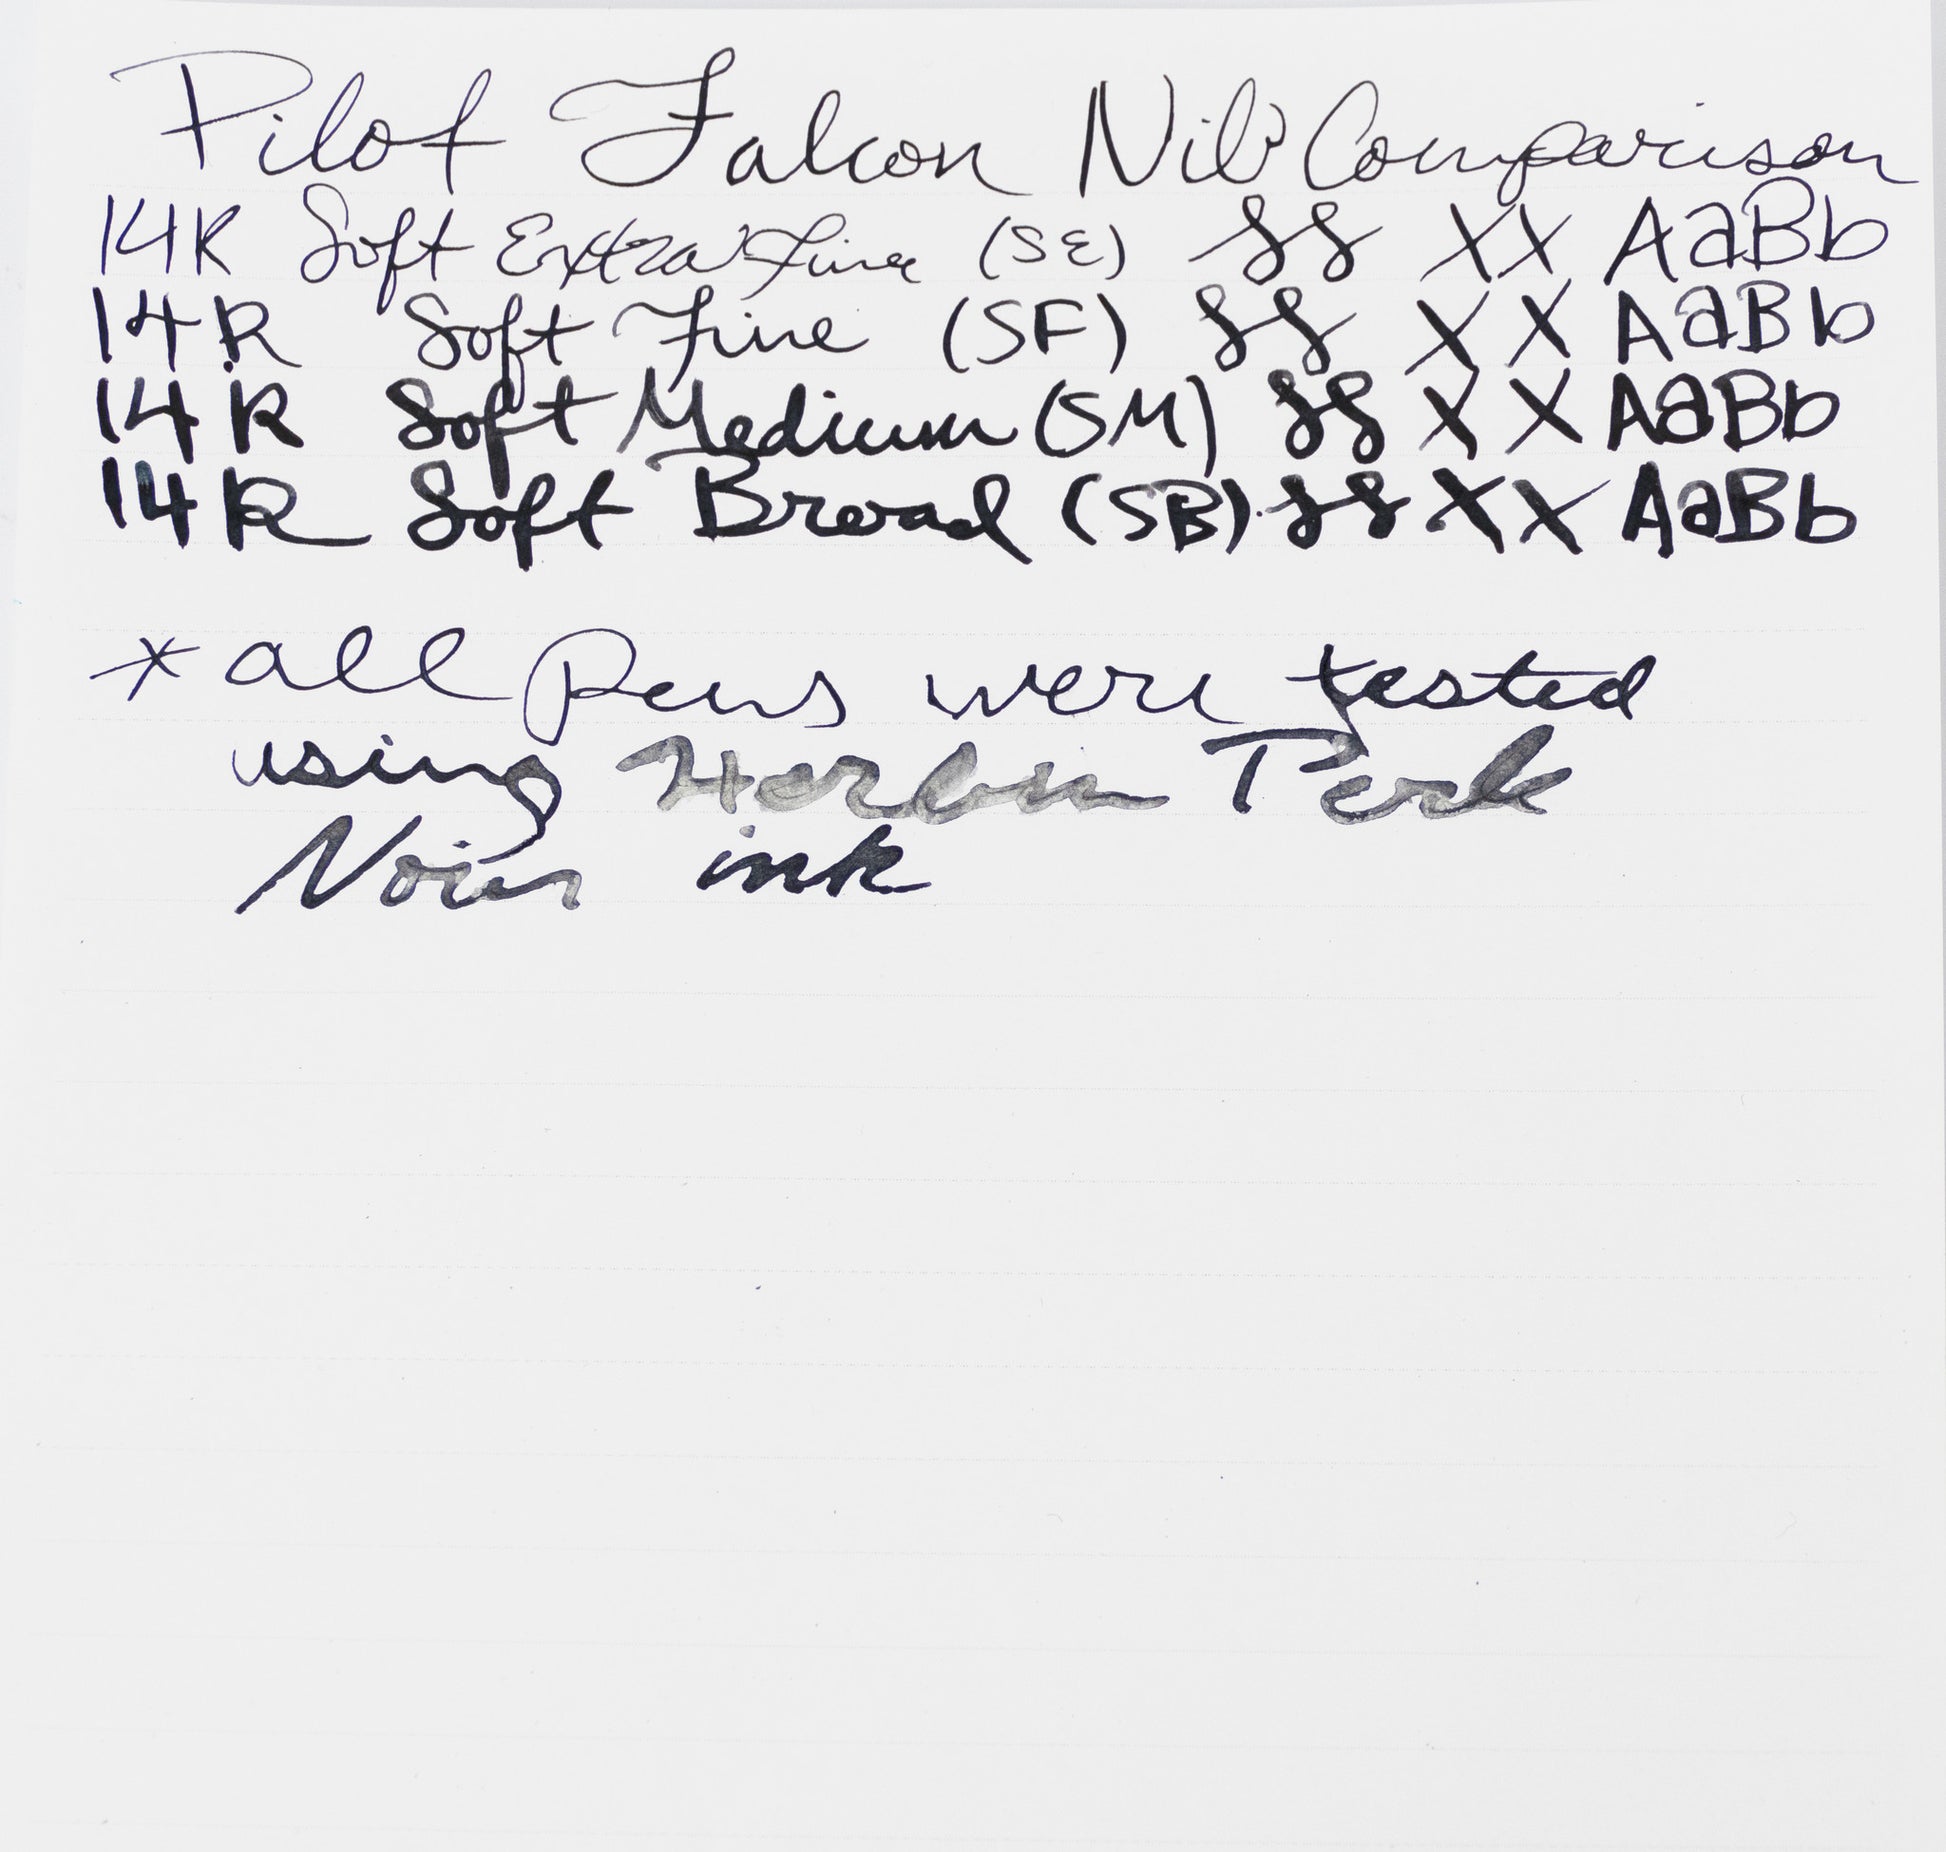 Pilot Falcon Nib Comparison
14K Soft Extra Fine (SE) SS XX AaBb
14K Soft Fine (SF) SS XX AaBb
14K Soft Medium (SM) SS XX AaBb
14K Soft Broad (SB) SS XX AaBb
* all pens were tested
using Herbin Perle
Noir ink